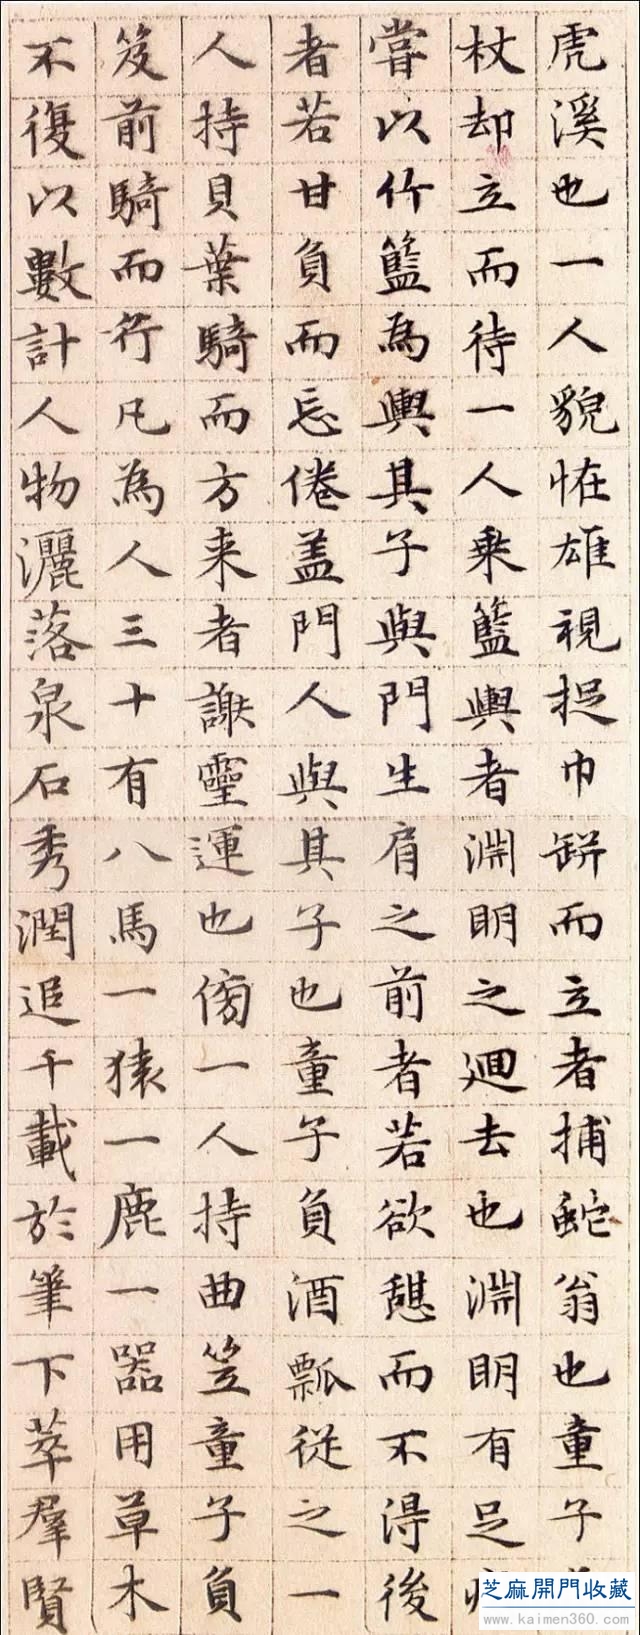 虎溪也一人貌恠雄視捉巾缾而立者捕蛇翁也童子
杖却立而待一人乗籃輿者淵明之迴去也淵明有足
嘗以竹籃為輿其子與門生肩之前者若欲憩而不得後
者若甘負而忘倦盖門人與其子也童子負酒瓢從之一
人持貝葉騎而方来者謝靈運也傍一人持曲笠童子負
笈前騎而行凡為人三十有八馬一猿一鹿一器用草木
不復以數計人物灑落泉石秀潤追千載於筆下萃羣賢
芝麻開門收藏
www.kaimen360.com